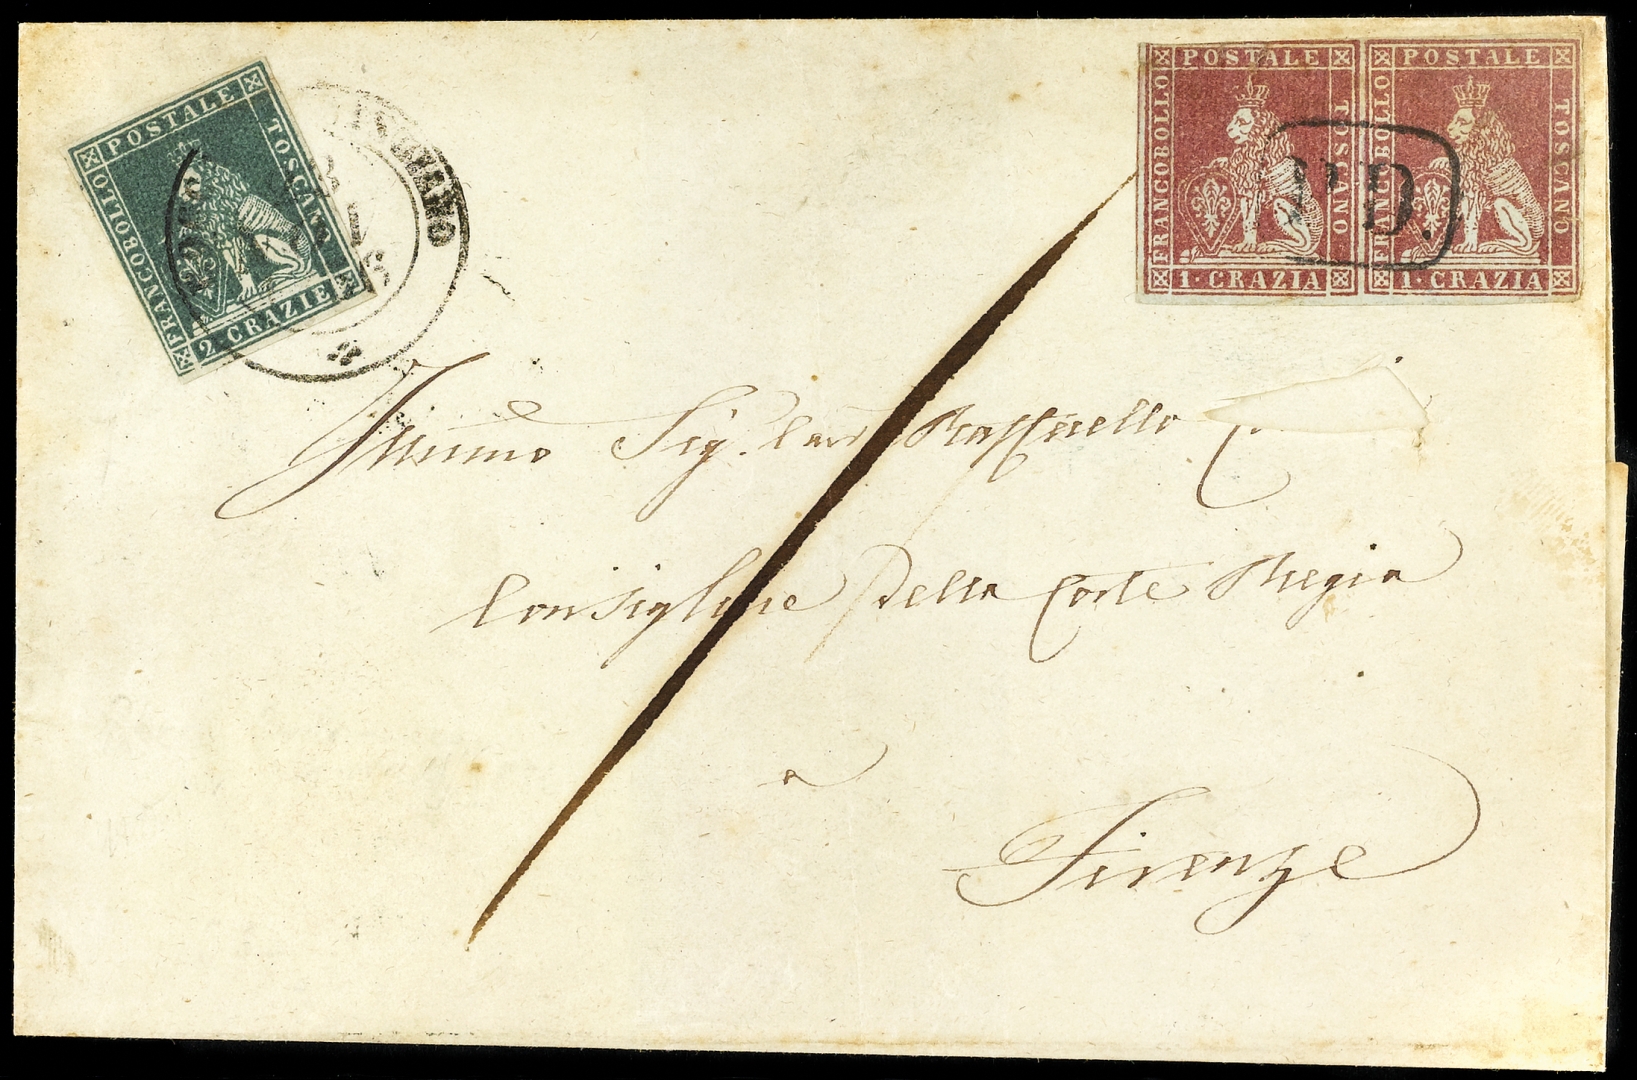 POSTALE
FRANCOBOLLO
TOSCANO
2 · CRAZIE
POSTALE
FRANCOBOLLO
TOSCANO
1 · CRAZIA
POSTALE
FRANCOBOLLO
TOSCANO
1 · CRAZIA
P.D.
Illmo Sig. Cav Raffaello
Consigliere della Corte Regia
a
Firenze